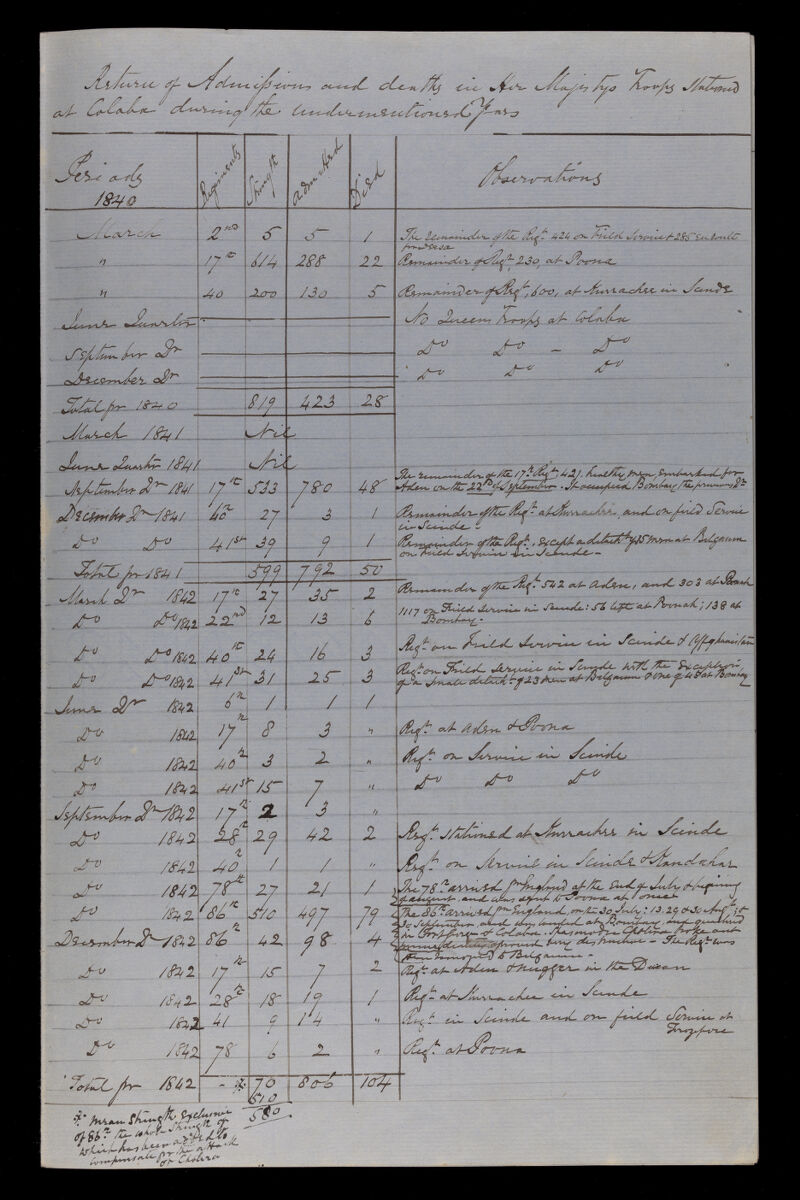 Return of Admissions and deaths in Her Majestys Troops Stationed
at Colaba during the undermentioned Years
Periods Regiments Strength Admitted Died Observations
1840
March 2nd 5 5 1 The remainder of the Regt. 424 on Field Service & 285 en route
" 17th 614 288 22 Remainder of Regt. 230, at Poona
" 40 200 130 5 Remainder of Regt, 600, at Kurrachee in Scinde
June Quarter No Queens Troops at Colaba
September Qr Do Do - Do
December Qr Do Do Do
Total for 1840 819 423 28
March 1841 Nil
June Quarter 1841 Nil
The remainder of the 17th Regt 421 healthy men, embarked for
September Qr 1841 17th 533 780 48 Aden on the 22nd of September. It occupied Bombay the previous Qr
December Qr 1841 40th 27 3 1 Remainder of the Regt. at Kurrachee, and on field Service
in Scinde
Do Do 41st 39 9 1 Remainder of the Regt, except a detacht of 45 men at Belgaum
on Field Service in Scinde -
Total for 1841 599 792 50
March Qr 1842 17th 27 35 2 Remainder of the Regt. 542 at Aden, and 303 at Poonah
Do Do 1842 22nd 12 13 6 1117 on Field Service in Scinde: 56 left at Poonah; 138 at
Bombay.
Do Do 1842 40th 24 16 3 Regt. on Field Service in Scinde & Affghanistan
Do Do 1842 41st 31 25 3 Regt. on Field Service in Scinde with the exception,
of a small detacht of 23 men at Belgaum & one of 48 at Bombay
June Qr 1842 6th 1 1 1
Do 1842 17th 8 3 " Regt. at Aden & Poona
Do 1842 40th 3 2 " Regt. on Service in Scinde
Do 1842 41st 15 7 " Do Do Do
September Qr 1842 17th 2 3 "
Do 1842 28th 29 42 2 Regt. stationed at Kurrachee in Scinde
Do 1842 40th 1 1 " Regt. on Service in Scinde & Kandahar
Do 1842 78th 27 21 1 The 78th arrived from England at the end of July & beginning
of August and was sent to Poona at once
Do 1842 86th 510 497 79 The 86th arrived from England on the 30 July: 13. 29 & 30 Augt; &
30 September and was landed at Bombay and quartered
in Fort George & Colaba. Spasmodic Cholera broke out
December Qr 1842 86th 42 98 4 immediately & proved very destructive - The Regt was
then removed to Belgaum -
Do 1842 17th 15 7 2 Regt. at Aden & in the Deccan
Do 1842 28th 18 19 1 Regt. at Kurrachee in Scinde
Do 1842 41 9 14 " Regt. in Scinde and on field Service at
Do 1842 78 6 2 " Regt. at Poona
Total for 1842 - * 70 806 104
510
580
* Mean Strength exclusive
of 86th the whole Strength of
which has been added to
compensate for the attack
of Cholera